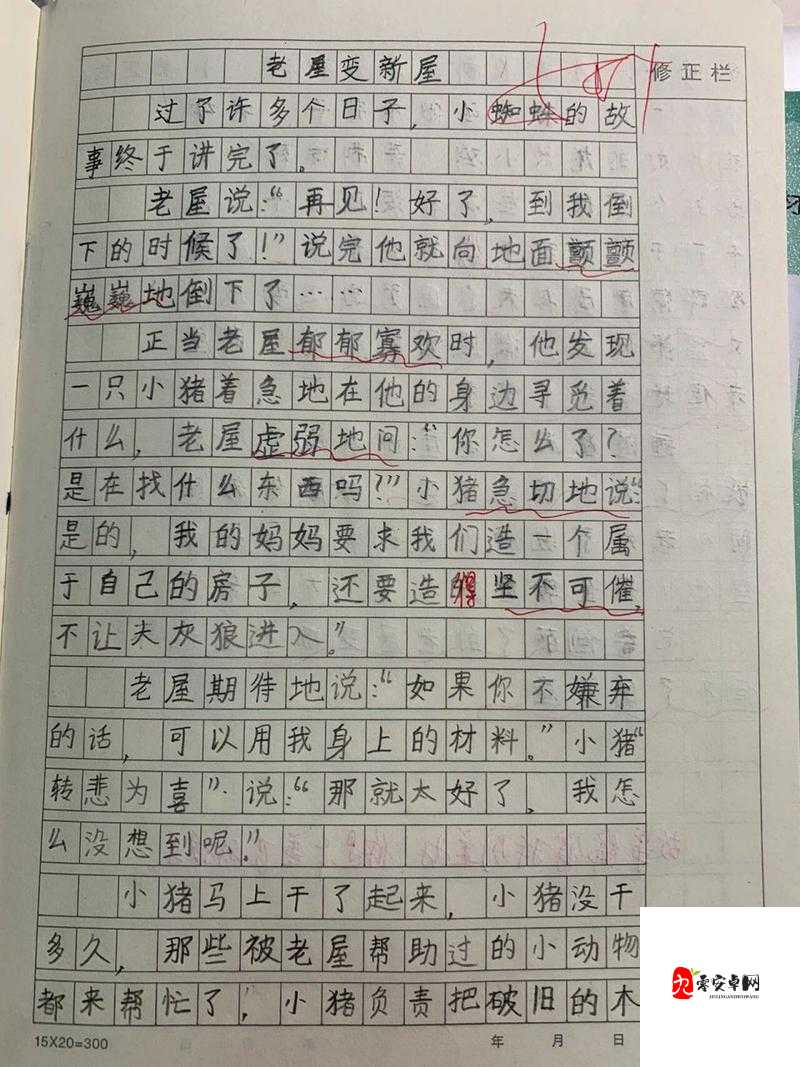 老屋变新屋
修正栏
过了许多个日子，小蜘蛛的故
事终于讲完了。
老屋说：“再见！好了，到我倒
下的时候了！”说完他就向地面颤颤
巍巍地倒下了……
正当老屋郁郁寡欢时，他发现
一只小猪着急地在他的身边寻觅着
什么，老屋虚弱地问：“你怎么了？
是在找什么东西吗？”小猪急切地说：“
是的，我的妈妈要求我们造一个属
于自己的房子，还要造得坚不可催，
不让大灰狼进入。”
老屋期待地说：“如果你不嫌弃
的话，可以用我身上的材料。”小猪“
转悲为喜”说：“那就太好了，我怎
么没想到呢。”
小猪马上干了起来，小猪没干
多久，那些被老屋帮助过的小动物
都来帮忙了，小猪负责把破旧的木
15X20=300
年 月 日
零安卓网
JIULINGANZHUOWANG